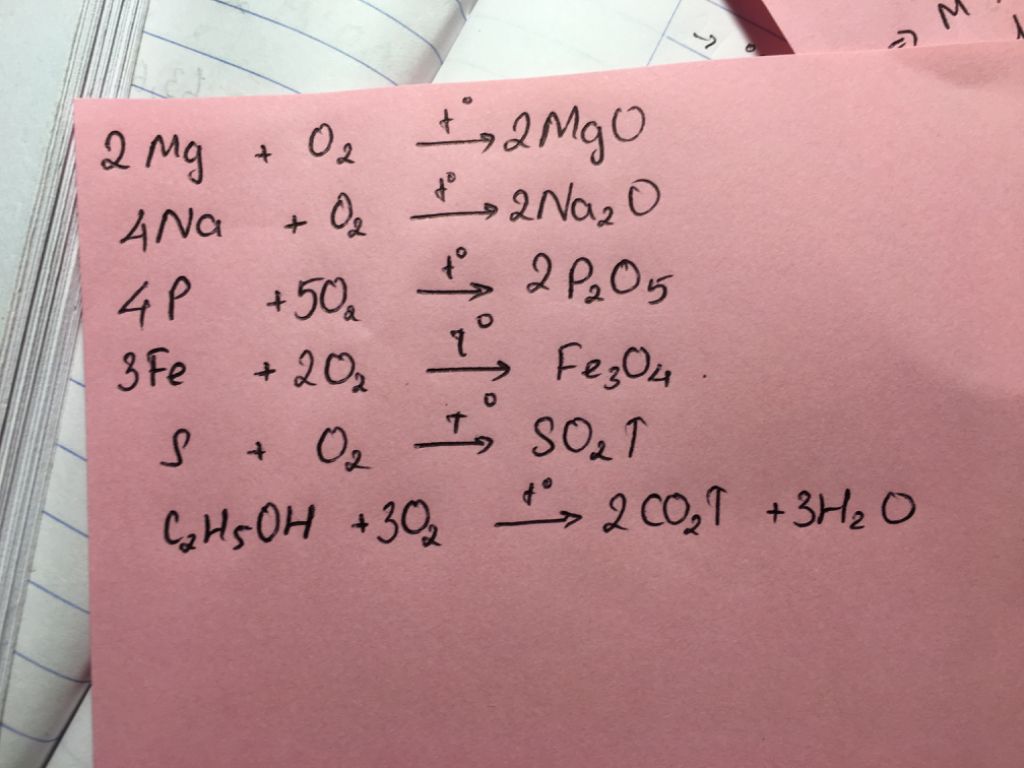 2Mg + O₂ →t° 2MgO
4Na + O₂ →t° 2Na₂O
4P + 5O₂ →t° 2P₂O₅
3Fe + 2O₂ →t° Fe₃O₄
S + O₂ →t° SO₂↑
C₂H₅OH + 3O₂ →t° 2CO₂↑ + 3H₂O